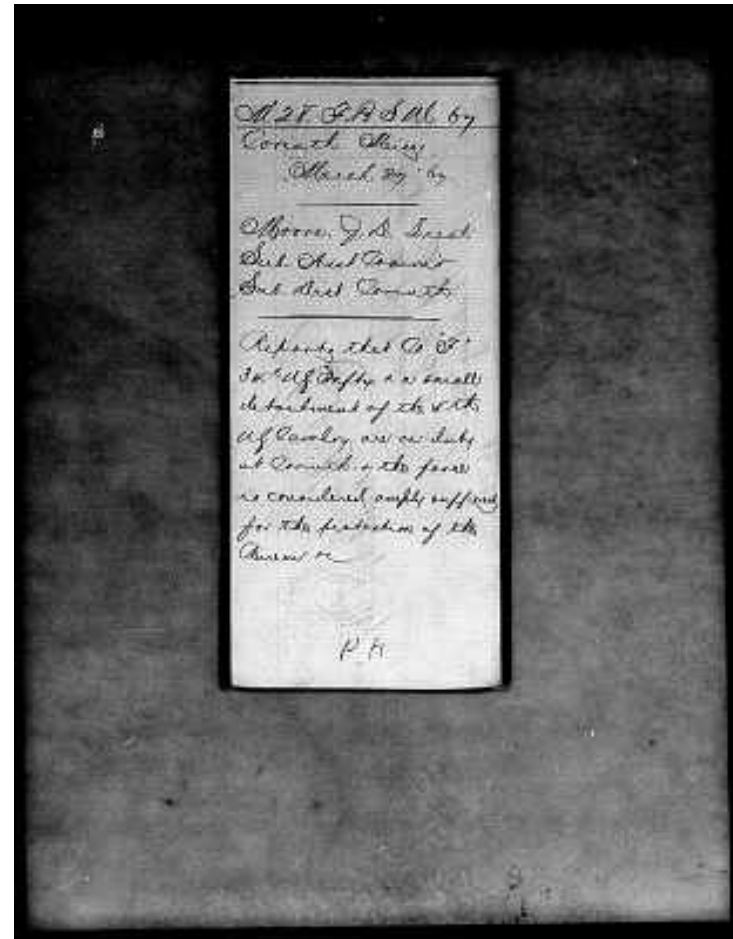 M 28 F A S M 67
Corinth Miss
March 29 67
Moore, J. D. Lieut
Sub Asst Commr
Sub Dist Corinth
Reports that Co "F"
34th & a small
detachment of the 4th
Cavalry are on duty
at Corinth & the force
is considered amply
for the protection of the
Bureau &c